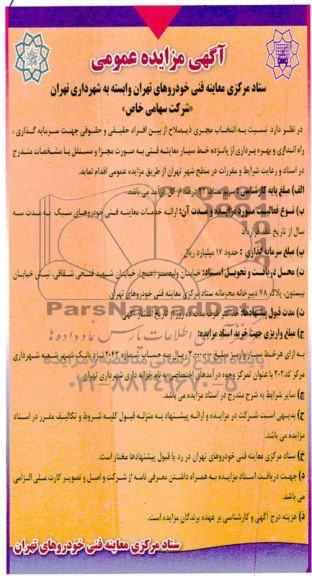 آگهی مزایده عمومی
ستاد مرکزی معاینه فنی خودروهای تهران وابسته به شهرداری تهران
«شرکت سهامی خاص»
در نظر دارد نسبت به انتخاب مجری ذیصلاح از بین افراد حقیقی و حقوقی جهت سرمایه گذاری،
راه اندازی و بهره برداری از پانزده خط سیار معاینه فنی به صورت مجزا و مستقل با مشخصات مندرج
در اسناد و رعایت شرایط و مقررات در سطح شهر تهران از طریق مزایده عمومی اقدام نماید.
الف) مبلغ پایه کارشناسی: سهم ستاد از کل درآمد می باشد.
ب) نوع فعالیت مورد مزایده و مدت آن: ارائه خدمات معاینه فنی خودروهای سبک به مدت سه
سال از تاریخ عقد قرارداد
پ) مبلغ سرمایه گذاری : حدود ۱۷ میلیارد ریال
ت) محل دریافت و تحویل اسناد: خیابان ولیعصر (عج)، خیابان شهید فتحی شقاقی، نبش خیابان
بیستون، پلاک ۷۸ دبیرخانه محرمانه ستاد مرکزی معاینه فنی خودروهای تهران
ث) مدت قبول پیشنهادها: حداکثر ظرف مدت ده روز از تاریخ انتشار آگهی
ج) مبلغ واریزی جهت خرید اسناد مزایده:
به ازای هر خط سیار واریز مبلغ ریال به حساب شماره نزد بانک شهر شعبه شهرداری
مرکز کد ۲۰۳ با عنوان تمرکز وجوه درآمدهای اختصاصی به نام خزانه داری شهرداری تهران
چ) سایر شرایط به شرح مندرج در اسناد مزایده می باشد.
ح) بدیهی است شرکت در مزایده و ارائه پیشنهاد به منزله قبول کلیه شروط و تکالیف مقرر در اسناد
مزایده می باشد.
خ) ستاد مرکزی معاینه فنی خودروهای تهران در رد یا قبول پیشنهادها مختار است.
د) جهت دریافت اسناد مزایده به همراه داشتن معرفی نامه از شرکت و اصل و تصویر کارت ملی الزامی
می باشد.
ذ) هزینه درج آگهی و کارشناسی بر عهده برندگان مزایده است.
ستاد مرکزی معاینه فنی خودروهای تهران
ParsNamadData
پایگاه اطلاع رسانی مناقصه و مزایده
۰۲۱-۸۸۳۴۹۶۷۰-۵